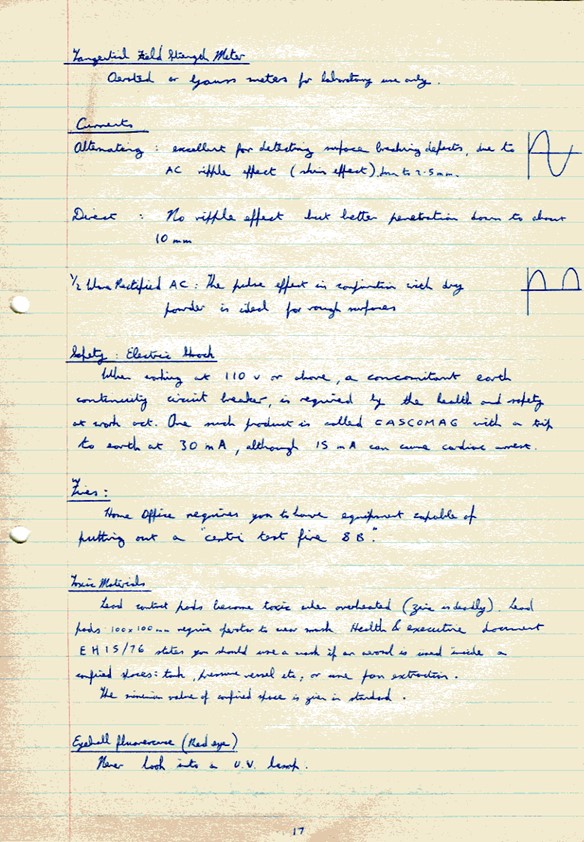 Tangential Field Strength Meter
Oersted or Gauss meters for laboratory use only.
Currents
Alternating : excellent for detecting surface breaking defects, due to
AC ripple effect (skin effect) down to 2.5mm.
Direct : No ripple effect but better penetration down to about
10 mm
1/2 Wave Rectified AC : The pulse effect in conjunction with dry
powder is ideal for rough surfaces
Safety : Electric Shock
When working at 110 v or above, a concomitant earth
continuity circuit breaker, is required by the health and safety
at work act. One such product is called GASCOMAG with a trip
to earth at 30 mA, although 15 mA can cause cardiac arrest.
Fires :
Home Office requires you to have equipment capable of
putting out a "centri test fire 8B".
Toxic Materials
Lead contact pads become toxic when overheated (zinc is deadly). Lead
pads 100x100mm require operator to wear mask. Health & executive document
EH15/76 states you should use a mask if an aerosol is used inside a
confined spaces: tank, pressure vessel etc, or use fan extraction.
The minimum value of confined space is given in standard.
Eyeball fluorescence (Red eye)
Never look into a U.V. lamp.
17